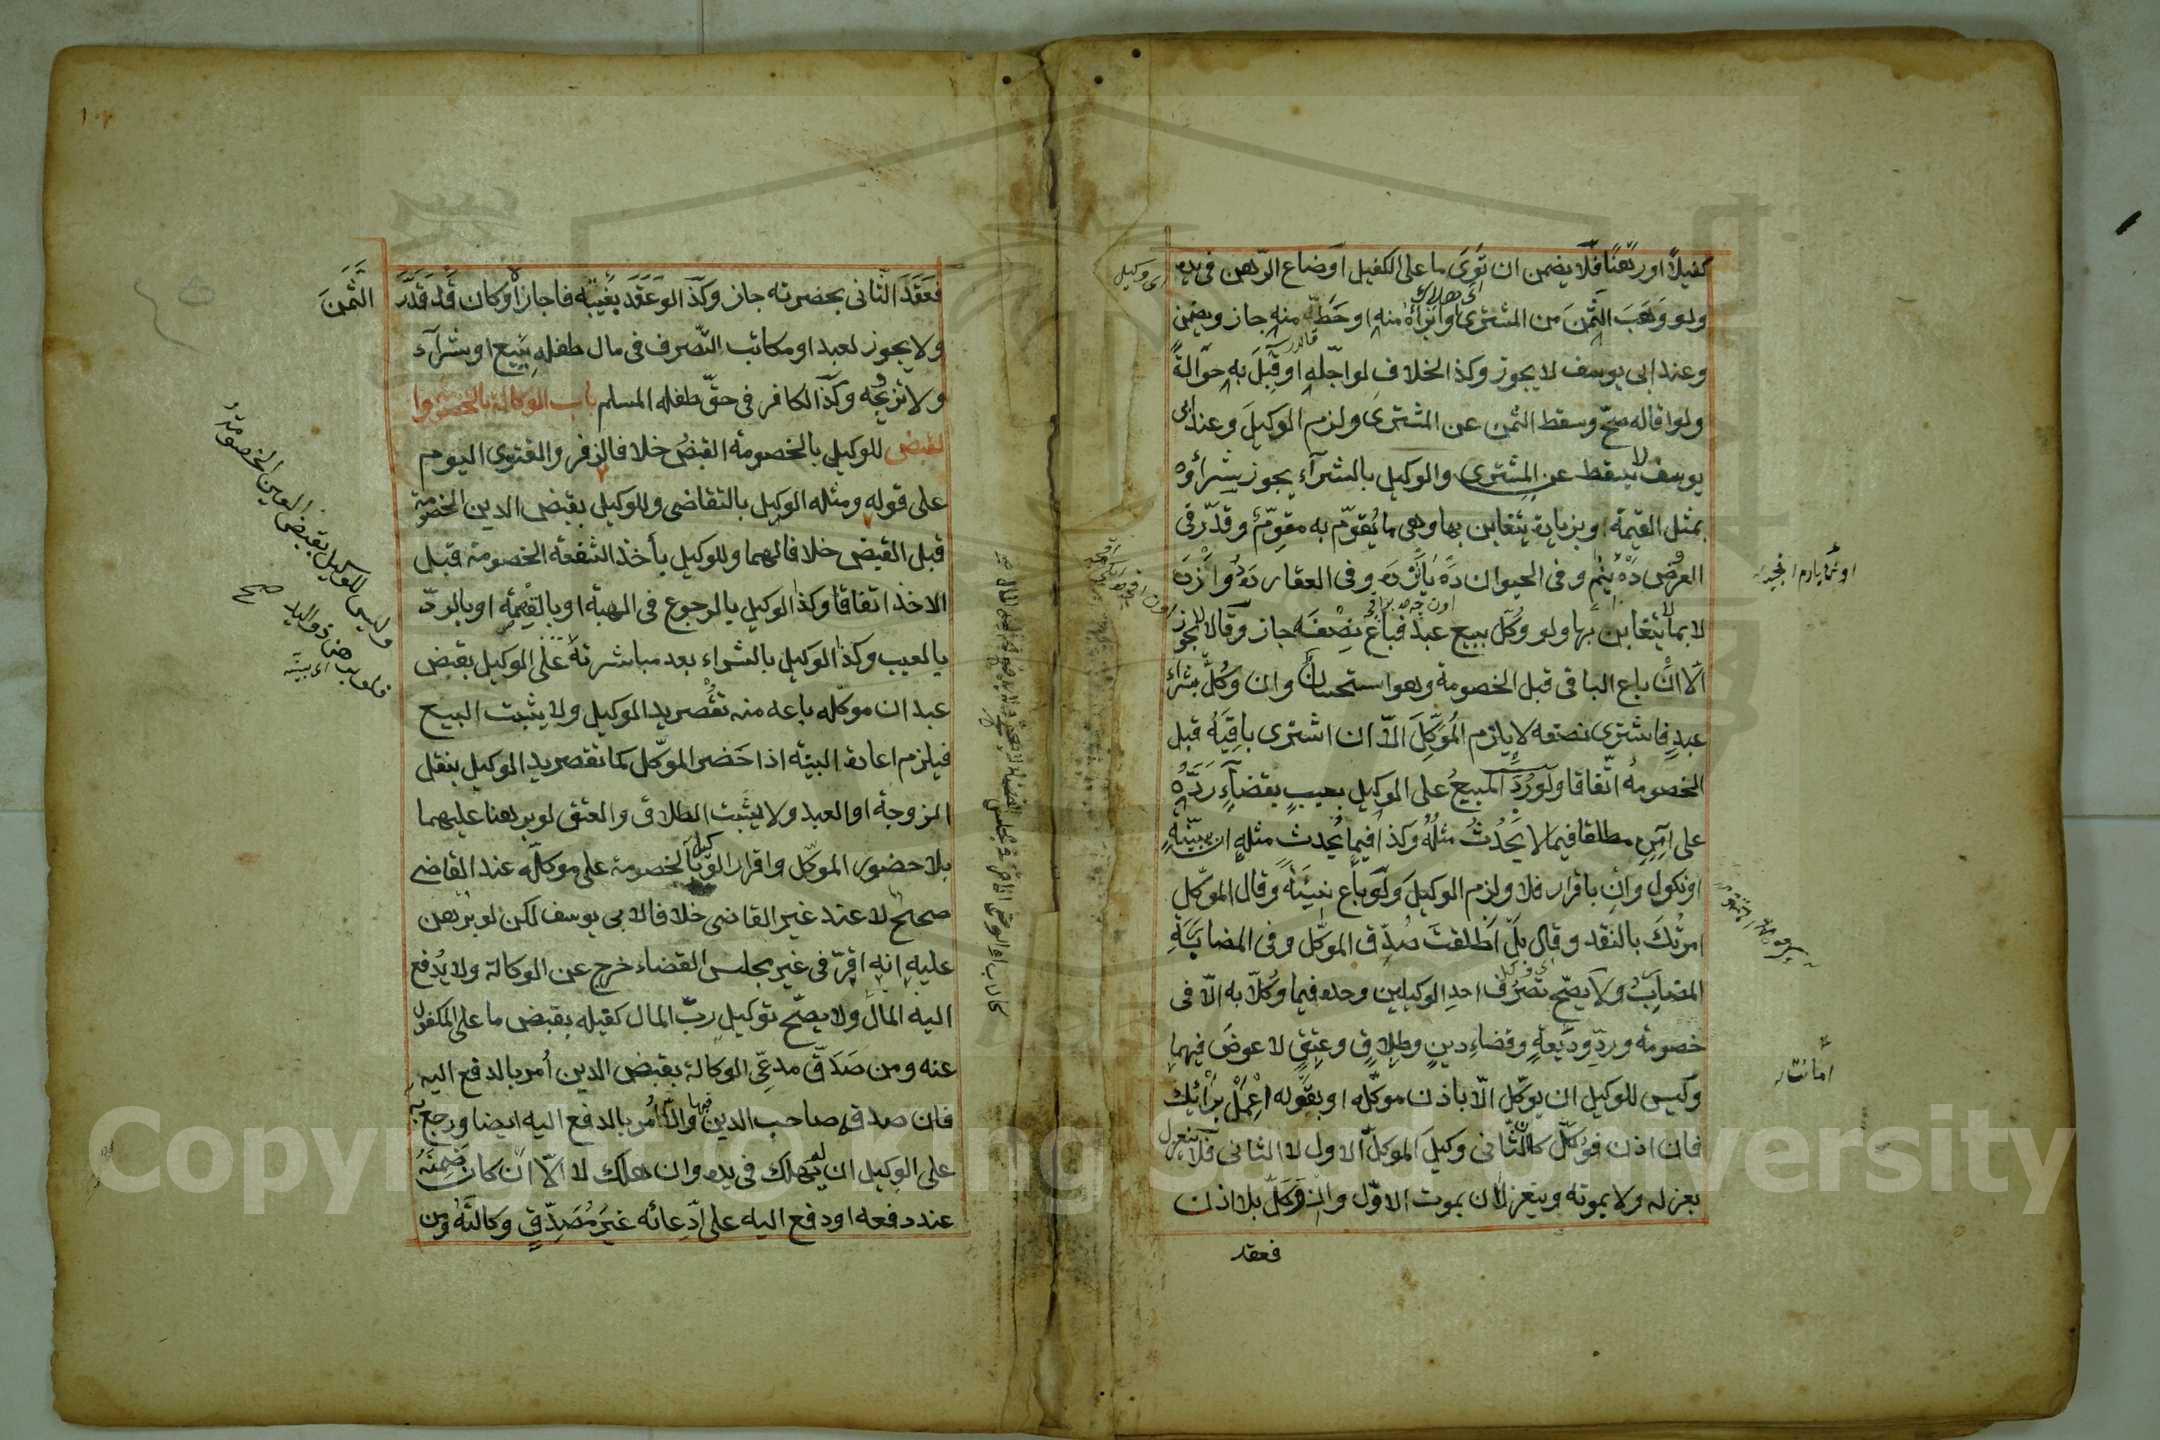 كفيلا او رهنا فلا يضمن ان توى ما على الكفيل او ضاع الرهن في يده
ولو وهب الثمن من المشترى او ابرأه منه او حط منه جاز ويضمن
وعند ابى يوسف لا يجوز وكذا الخلاف لو اجله او قبل به حوالة
ولو اقاله صح وسقط الثمن عن المشترى ولزم الوكيل وعند ابى
يوسف لا يسقط عن المشترى والوكيل بالشرآء يجوز شراؤه
بمثل القيمة او بزيادة يتغابن بها وهى ما يقوم به مقوم وقدر فى
العرض ده نيم وفى الحيوان ده يازده وفى العقار ده دوازده
لا بما لا يتغابن بها ولو وكل ببيع عبد فباع نصفه جاز وقالا لا يجوز
الا ان باع الباقى قبل الخصومة وهو استحسان وان وكل بشراء
عبد فاشترى نصفه لا يلزم الموكل الا ان اشترى باقيه قبل
الخصومة اتفاقا ولو رد المبيع على الوكيل بعيب بقضآء رده
على آمره مطلقا فيما لا يحدث مثله وكذا فيما يحدث مثله ان ببينة
او نكول وان باقرار فلا ولزم الوكيل ولو باع نسيئة وقال الموكل
امرتك بالنقد وقال بل اطلقت صدق الموكل وفى المضاربة
المضارب ولا يصح تصرف احد الوكيلين وحده فيما وكلا به الا فى
خصومة ورد وديعة وقضاء دين وطلاق وعتق لا عوض فيهما
وليس للوكيل ان يوكل الا باذن موكله او بقوله اعمل برائك
فان اذن فوكل كان الثانى وكيل الموكل الاول لا الثانى فلا ينعزل
بعزله ولا بموته وينعزلان بموت الاول وان وكل بلا اذن
فعقد
اى وكيل
اى هلاك
امانت
فعقد الثانى بحضرته جاز وكذا لو عقد بغيبته فاجازه او كان قد قدر الثمن
ولا يجوز لعبد او مكاتب التصرف فى مال طفله ببيع او شرآء
ولا تزويجه وكذا الكافر فى حق طفله المسلم باب الوكالة بالخصومة وا
لقبض للوكيل بالخصومة القبض خلافا لزفر والفتوى اليوم
على قوله ومثله الوكيل بالتقاضى وللوكيل بقبض الدين الخصومة
قبل القبض خلافا لهما وللوكيل بأخذ الشفعة الخصومة قبل
الاخذ اتفاقا وكذا الوكيل بالرجوع فى الهبة او بالقيمة او بالرد
بالعيب وكذا الوكيل بالشراء بعد مباشرته على الوكيل بقبض
عبد ان موكله باعه منه تقصر يد الوكيل ولا يثبت البيع
فيلزم اعادة البينة اذا حضر الموكل كما تقصر يد الوكيل بنقل
الزوجة او العبد ولا يثبت الطلاق والعتق لو برهنا عليهما
بلا حضور الموكل واقرار الوكيل بالخصومة على موكله عند القاضى
صحيح لا عند غير القاضى خلافا لابى يوسف لكن لو برهن
عليه انه اقر فى غير مجلس القضاء خرج عن الوكالة ولا يدفع
اليه المال ولا يصح توكيل رب المال كفيله بقبض ما على المكفول
عنه ومن صدق مدعى الوكالة بقبض الدين أمر بالدفع اليه
فان صدقه صاحب الدين فبها والا أمر بالدفع اليه ايضا ورجع به
على الوكيل ان لم يهلك فى يده وان هلك لا الا ان كان ضمنه
عند دفعه او دفع اليه على ادعائه غير مصدق وكالته ومن
وليس للوكيل بقبض العين الخصومة
صح